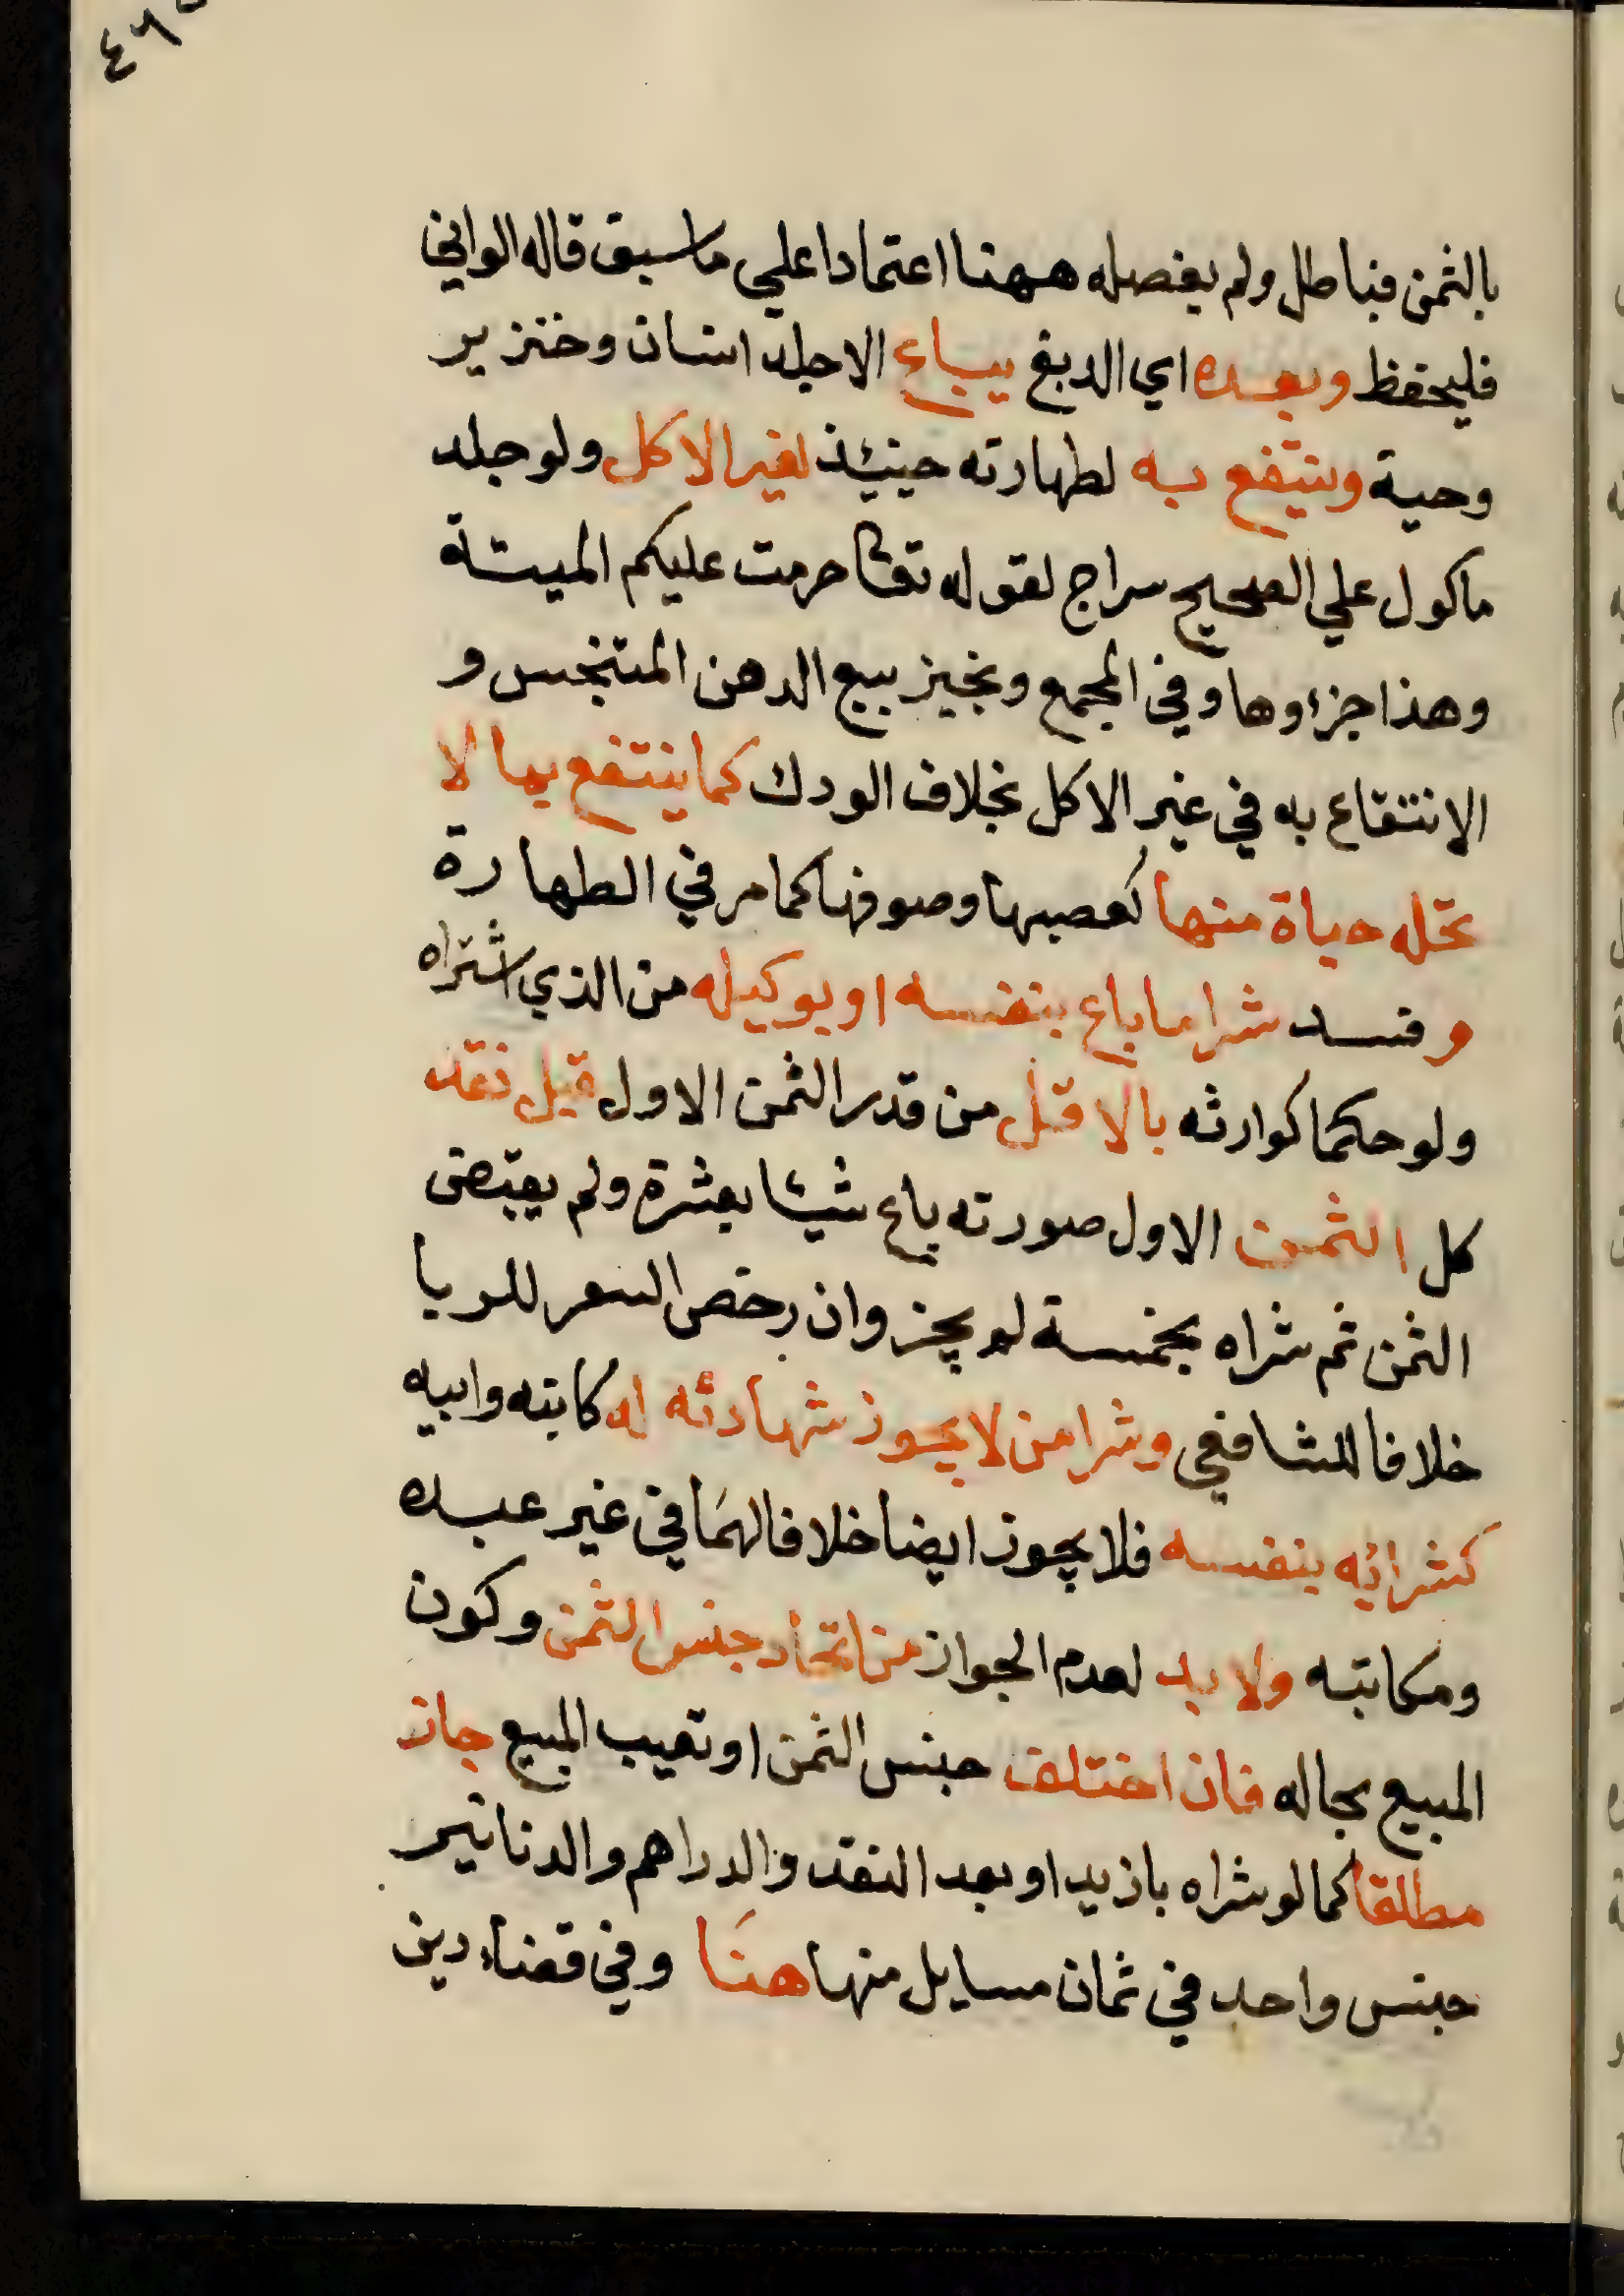 بالثمن فباطل ولم يفصله ههنا اعتمادا علي ماسبق قاله الواني
فليحفظ وبعده اي الدبغ يباع الا جلد انسان وخنزير
وحية وينتفع به لطهارته حينيئذ لغير الاكل ولو جلد
ماكول علي الصحيح سراج لقوله تعا حرمت عليكم الميتة
وهذا جزءوها وفي المجمع ونجيز بيع الدهن المتنجس و
الانتفاع به في غير الاكل بخلاف الودك كما ينتفع بها لا
تحله حياة منها كعصبها وصوفها كما مر في الطهارة
و فسد شرا ما باع بنفسه او بوكيله من الذي اشتراه
ولو حكما كوارثه بالاقل من قدر الثمن الاول قبل نقد
كل الثمن الاول صورته باع شيئا بعشرة ولم يقبض
الثمن ثم شراه بخمسة لم يجز وان رخص السعر للربا
خلافا للشافعي وشرا من لا يجوز شهادته له كابنه وابيه
كشرائه بنفسه فلا يجوز ايضا خلافا لهما في غير عبده
ومكاتبه ولا بد لعدم الجواز من اتحاد جنس الثمن وكون
المبيع بحاله فان اختلف جنس الثمن او تعيب المبيع جاز
مطلقا كما لو شراه بازيد او بعد النقد والدراهم والدنانير
جنس واحد في ثمان مسايل منها هنا وفي قضاء دين